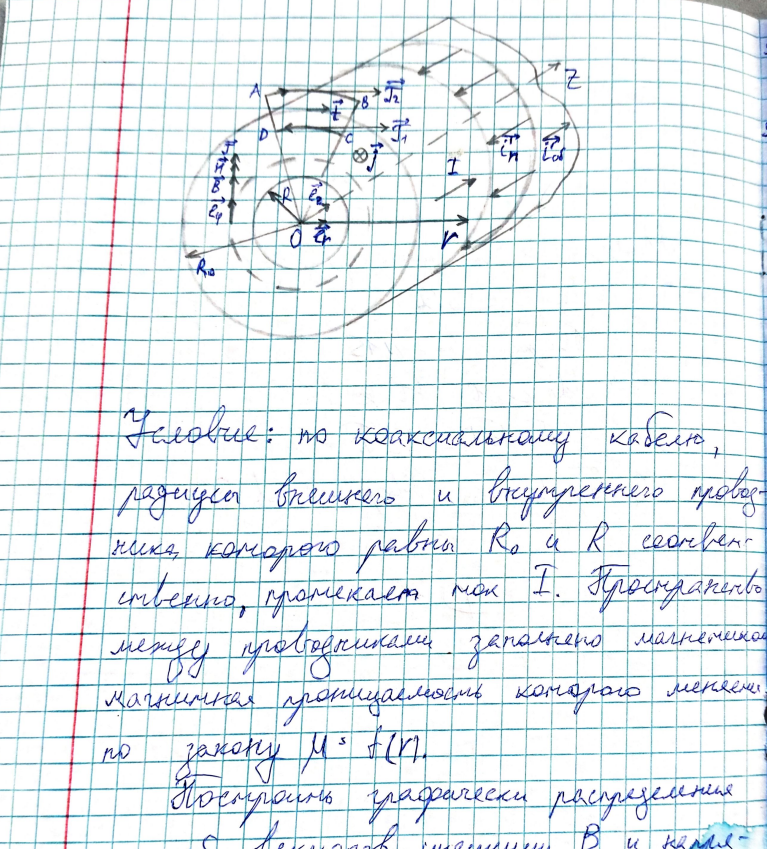 A
B
J₂
t
D
C
J₁
j
Z
iп
iоб
I
J
H
B
eφ
R
ez
O
er
r
R₀
Условие: по коаксиальному кабелю,
радиусы внешнего и внутреннего провод-
ника которого равны R₀ и R соответ-
ственно, протекает ток I. Пространство
между проводниками заполнено магнетиком
магнитная проницаемость которого меняется
по закону μ = f(r).
Построить графически распределения
векторов B и напря-